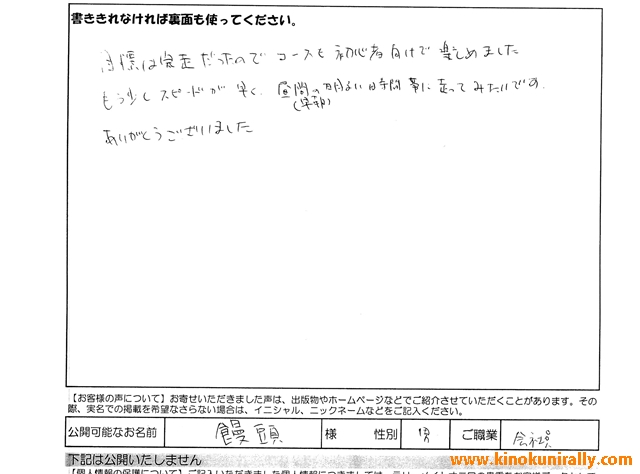 書ききれなければ裏面も使ってください。
目標は完走だったので コースも初心者向けで楽しめました
もう少しスピードが早く、昼間の明るい時間帯に走ってみたいです
(早朝)
ありがとうございました
【お客様の声について】お寄せいただきました声は、出版物やホームページなどでご紹介させていただくことがあります。その
際、実名での掲載を希望なさらない場合は、イニシャル、ニックネームなどをご記入ください。
公開可能なお名前 饅頭 様 性別 男 ご職業
下記は公開いたしません
www.kinokunirally.com